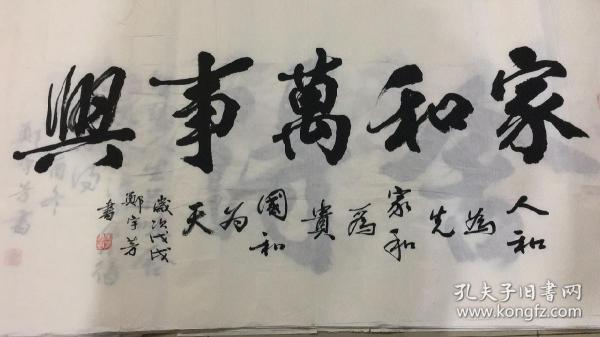 家和萬事興
人和為先家和為貴國和为天
歲次戊戌
鄭宇芳
書
孔夫子旧书网
www.kongfz.com